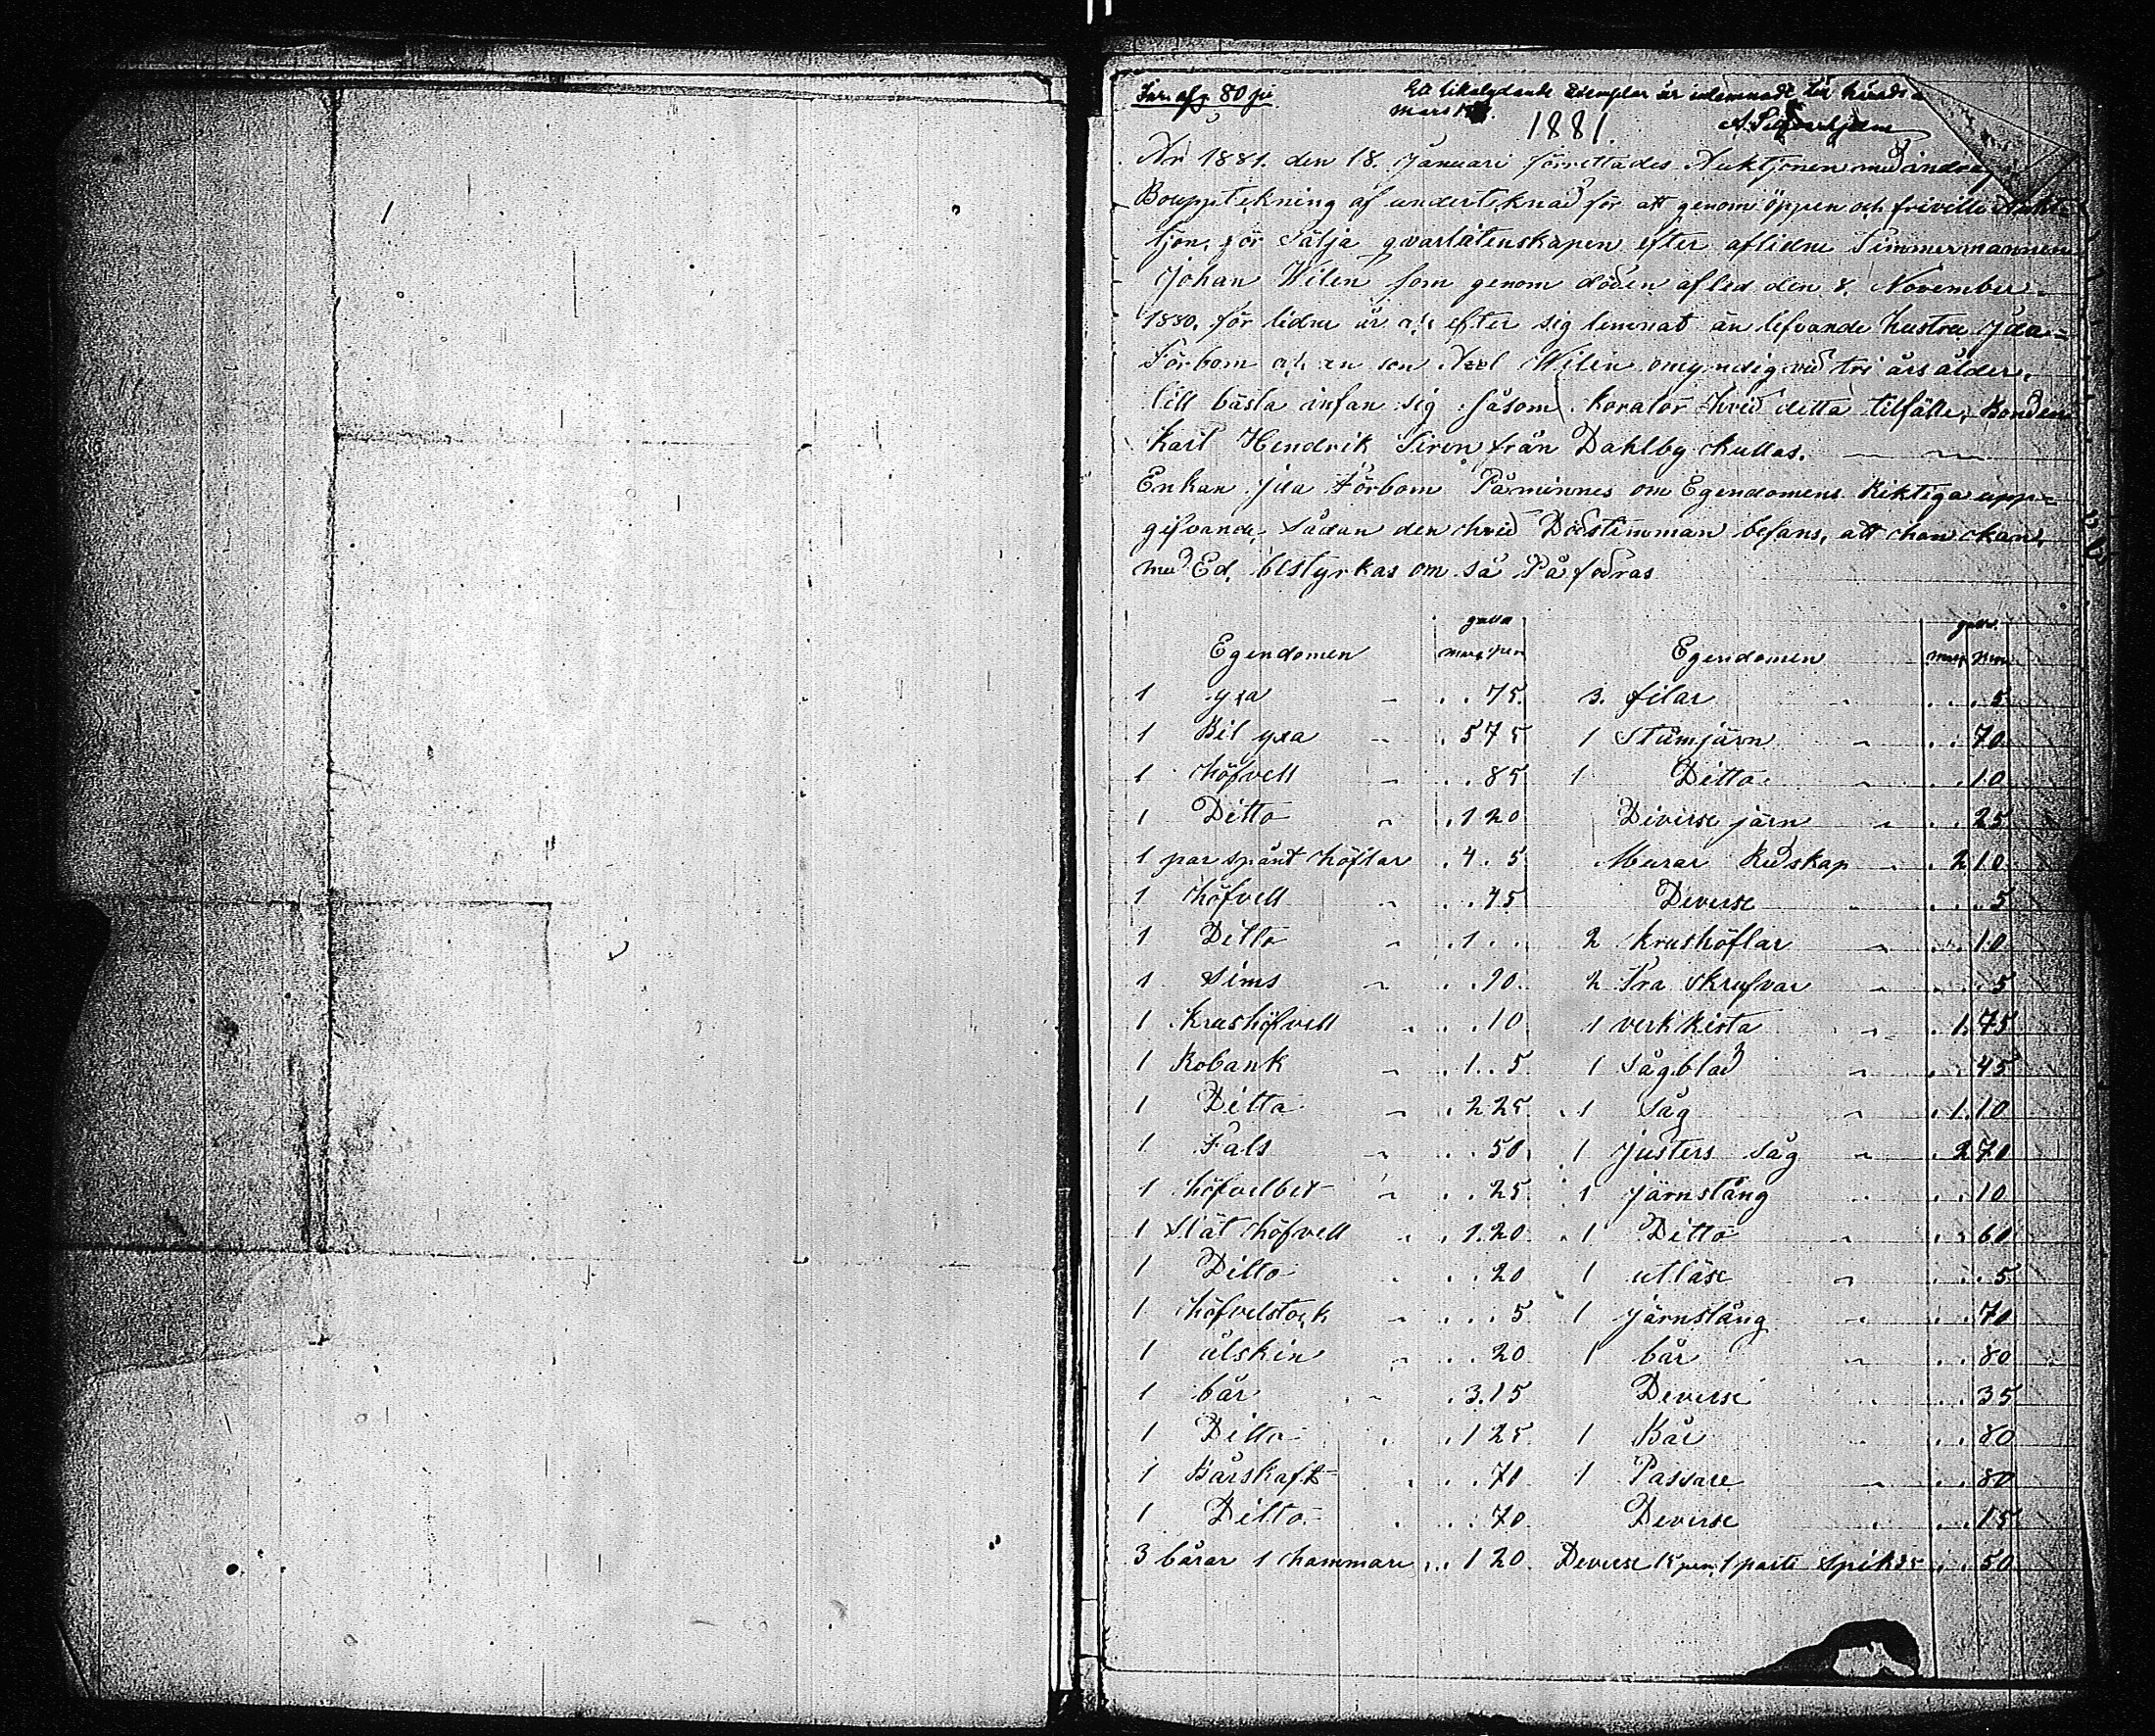 80 pi
Ett likalydande Exemplar är inlemnadt till härads
mars
1881.
År 1881. den 18. Januari förrettades Auktjonen med
Bouppteckning af underteknad för att genom öppen och frivillig Aukt-
tjon, för Sälja qvarlåtenskapen efter aflidne Timmermannen
Johan Wilén som genom döden afled den 8. November
1880. för lidne år och efter sig lemnat än lefvande hustru Ida
Förbom och en son Axel Wilén omyndig vid tri års ålder.
till bästa infan sig såsom korator hvid detta tilfälle, Bonden
Karl Hendrik Siren från Dahlby Kullas.
Enkan Ida Förbom Påminnes om Egendomens Riktiga upp=
gifvande, Sådan den hvid Dödstimman befans, att hon kan,
med Ed. bestyrkas om så Påfodras
gulla gulla
Egendomen mark pen Egendomen mark pen
1 yxa " . . 75 3. filar " . . . 5
1 Bil yxa " . 5 75 1 Stämjärn " . . 70
1 höfvell " . . 85 1 Ditto " . . 10
1 Ditto " . 1 20 Diverse järn " . . 25
1 par spånt höflar . 4 . 5 Murar Redskap " . 2 10
1 höfvell " . . 45 Diverse " . . . 5
1 Ditto " . 1 . . 2 krushöflar " . . 10
1 Sims " . . 10 2 Trä Skrufvar " . . . 5
1 Krushöfvell " . . 10 1 verk kista " . 1. 75
1 Robank " . 1 . . 5 1 Sågblad " . . 45
1 Ditto " . 2 25 1 Såg " . 1. 10
1 Fals " . . 50 1 justers såg " . 2 70
1 höfvelbet " . . 25 1 järnstång " . . 10
1 Slät höfvell " . 1. 20 1 Ditto " . . 60
1 Ditto " . . 20 1 utläse " . . . 5
1 höfvelstock " . . . 5 1 järnstång " . . 70
1 ålskin " . . 20 1 bår " . . 80
1 bår " . 3. 15 Deverse " . . 35
1 Ditto " . 1 25 1 Bår " . . 80
1 Bårskaft " . . 70 1 Passare " . . 80
1 Ditto " . . 70 Deverse " . . 15
3 bårar 1 hammare . . 1 20 Deverse 15 pen, 1 parti Spik 35 . . 50